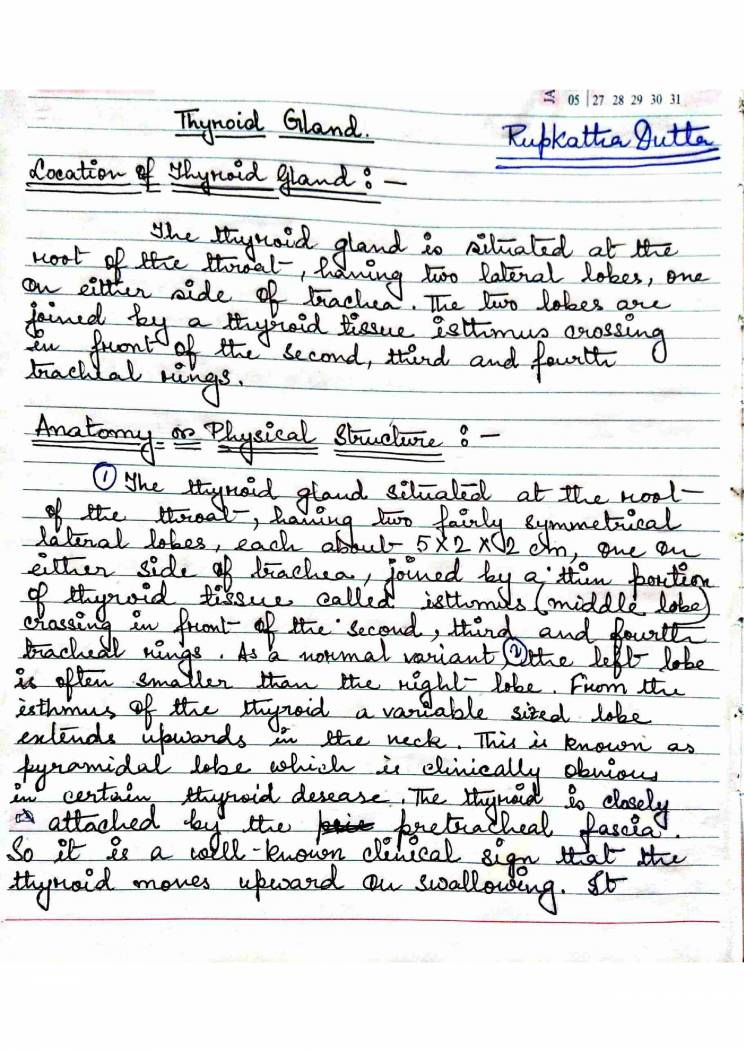 IA 05 | 27 28 29 30 31
Thyroid Gland.
Rupkatha Dutta
Location of Thyroid Gland : —
The thyroid gland is situated at the
root of the throat, having two lateral lobes, one
on either side of trachea. The two lobes are
joined by a thyroid tissue isthimus crossing
in front of the second, third and fourth
tracheal rings.
Anatomy or Physical Structure : —
① The thyroid gland situated at the root
of the throat, having two fairly symmetrical
lateral lobes, each about 5 x 2 x 2 cm, one on
either side of trachea, joined by a thin portion
of thyroid tissue called isthmus (middle lobe)
crossing in front of the second, third and fourth
tracheal rings. As a normal variant, ② the left lobe
is often smaller than the right lobe. From the
isthmus of the thyroid a variable sized lobe
extends upwards in the neck. This is known as
pyramidal lobe which is clinically obvious
in certain thyroid desease. The thyroid is closely
attached by the pretracheal fascia.
So it is a well-known clinical sign that the
thyroid moves upward on swallowing. It